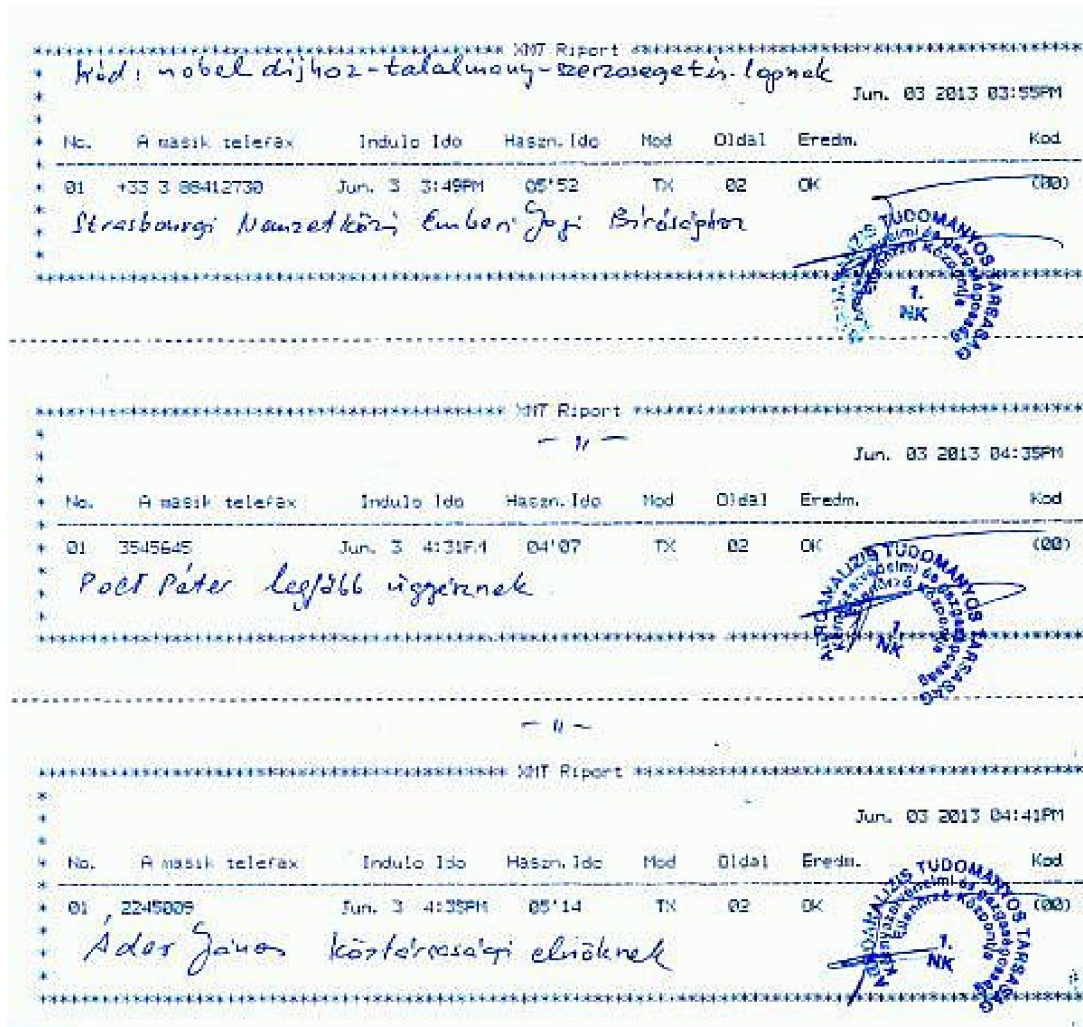 XMT Riport
kód: nobel dijhoz-talalmany-szerzosegetis-lopnak
Jun. 03 2013 03:55PM
No. A masik telefax Indulo Ido Haszn.Ido Mod Oldal Eredm. Kod
01 +33 3 88412730 Jun. 3 3:49PM 05'52 TX 02 OK (00)
Strasbourgi Nemzetközi Emberi Jogi Bírósághoz
TUDOMÁNYOS TÁRSASÁG
1.
NK
XMT Riport
- 11 -
Jun. 03 2013 04:35PM
No. A masik telefax Indulo Ido Haszn.Ido Mod Oldal Eredm. Kod
01 3545645 Jun. 3 4:31PM 04'07 TX 02 OK (00)
Polt Péter legfőbb ügyésznek
TUDOMÁNYOS TÁRSASÁG
1.
NK
- 11 -
XMT Riport
Jun. 03 2013 04:41PM
No. A masik telefax Indulo Ido Haszn.Ido Mod Oldal Eredm. Kod
01 2245009 Jun. 3 4:35PM 05'14 TX 02 OK (00)
Áder János köztársasági elnöknek
TUDOMÁNYOS TÁRSASÁG
1.
NK